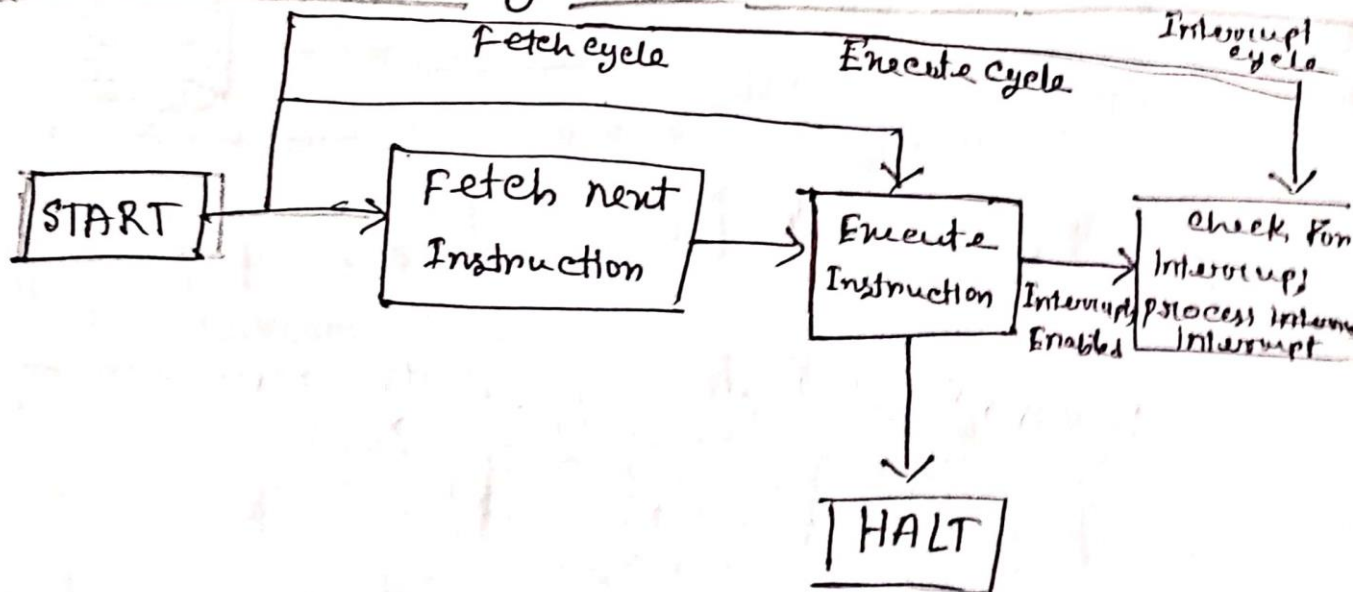 Fetch cycle
Execute cycle
Interrupt
cycle
START
Fetch next
Instruction
Execute
Instruction
Interrupts
Enabled
Check for
Interrupt,
process interru
Interrupt
HALT